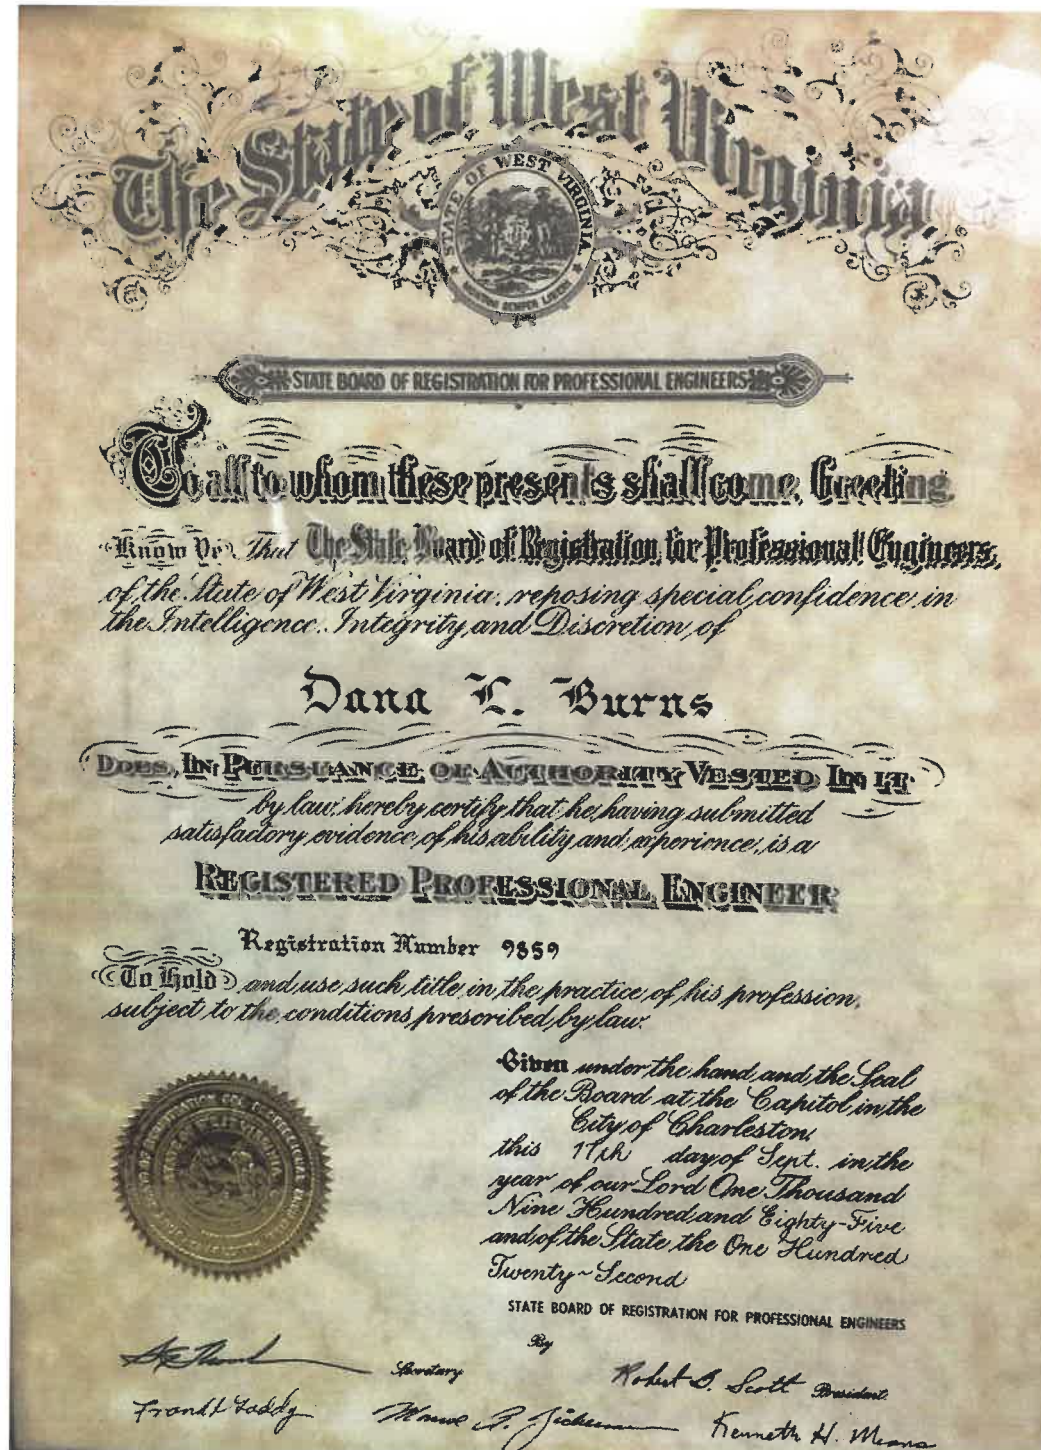 The State of West Virginia
STATE OF WEST VIRGINIA
MONTANI SEMPER LIBERI
STATE BOARD OF REGISTRATION FOR PROFESSIONAL ENGINEERS
To all to whom these presents shall come, Greeting
Know Ye, That The State Board of Registration for Professional Engineers,
of the State of West Virginia, reposing special confidence in
the Intelligence, Integrity and Discretion of
Dana L. Burns
DOES, IN PURSUANCE OF AUTHORITY VESTED IN IT
by law, hereby certify that he, having submitted
satisfactory evidence of his ability and experience, is a
REGISTERED PROFESSIONAL ENGINEER
Registration Number 9859
To Hold and use such title in the practice of his profession,
subject to the conditions prescribed by law.
Given under the hand and the Seal
of the Board at the Capitol in the
City of Charleston,
this 17th day of Sept. in the
year of our Lord One Thousand
Nine Hundred and Eighty-Five
and of the State the One Hundred
Twenty-Second
STATE BOARD OF REGISTRATION FOR PROFESSIONAL ENGINEERS
By
Secretary
Robert B. Scott President
Kenneth H. Means